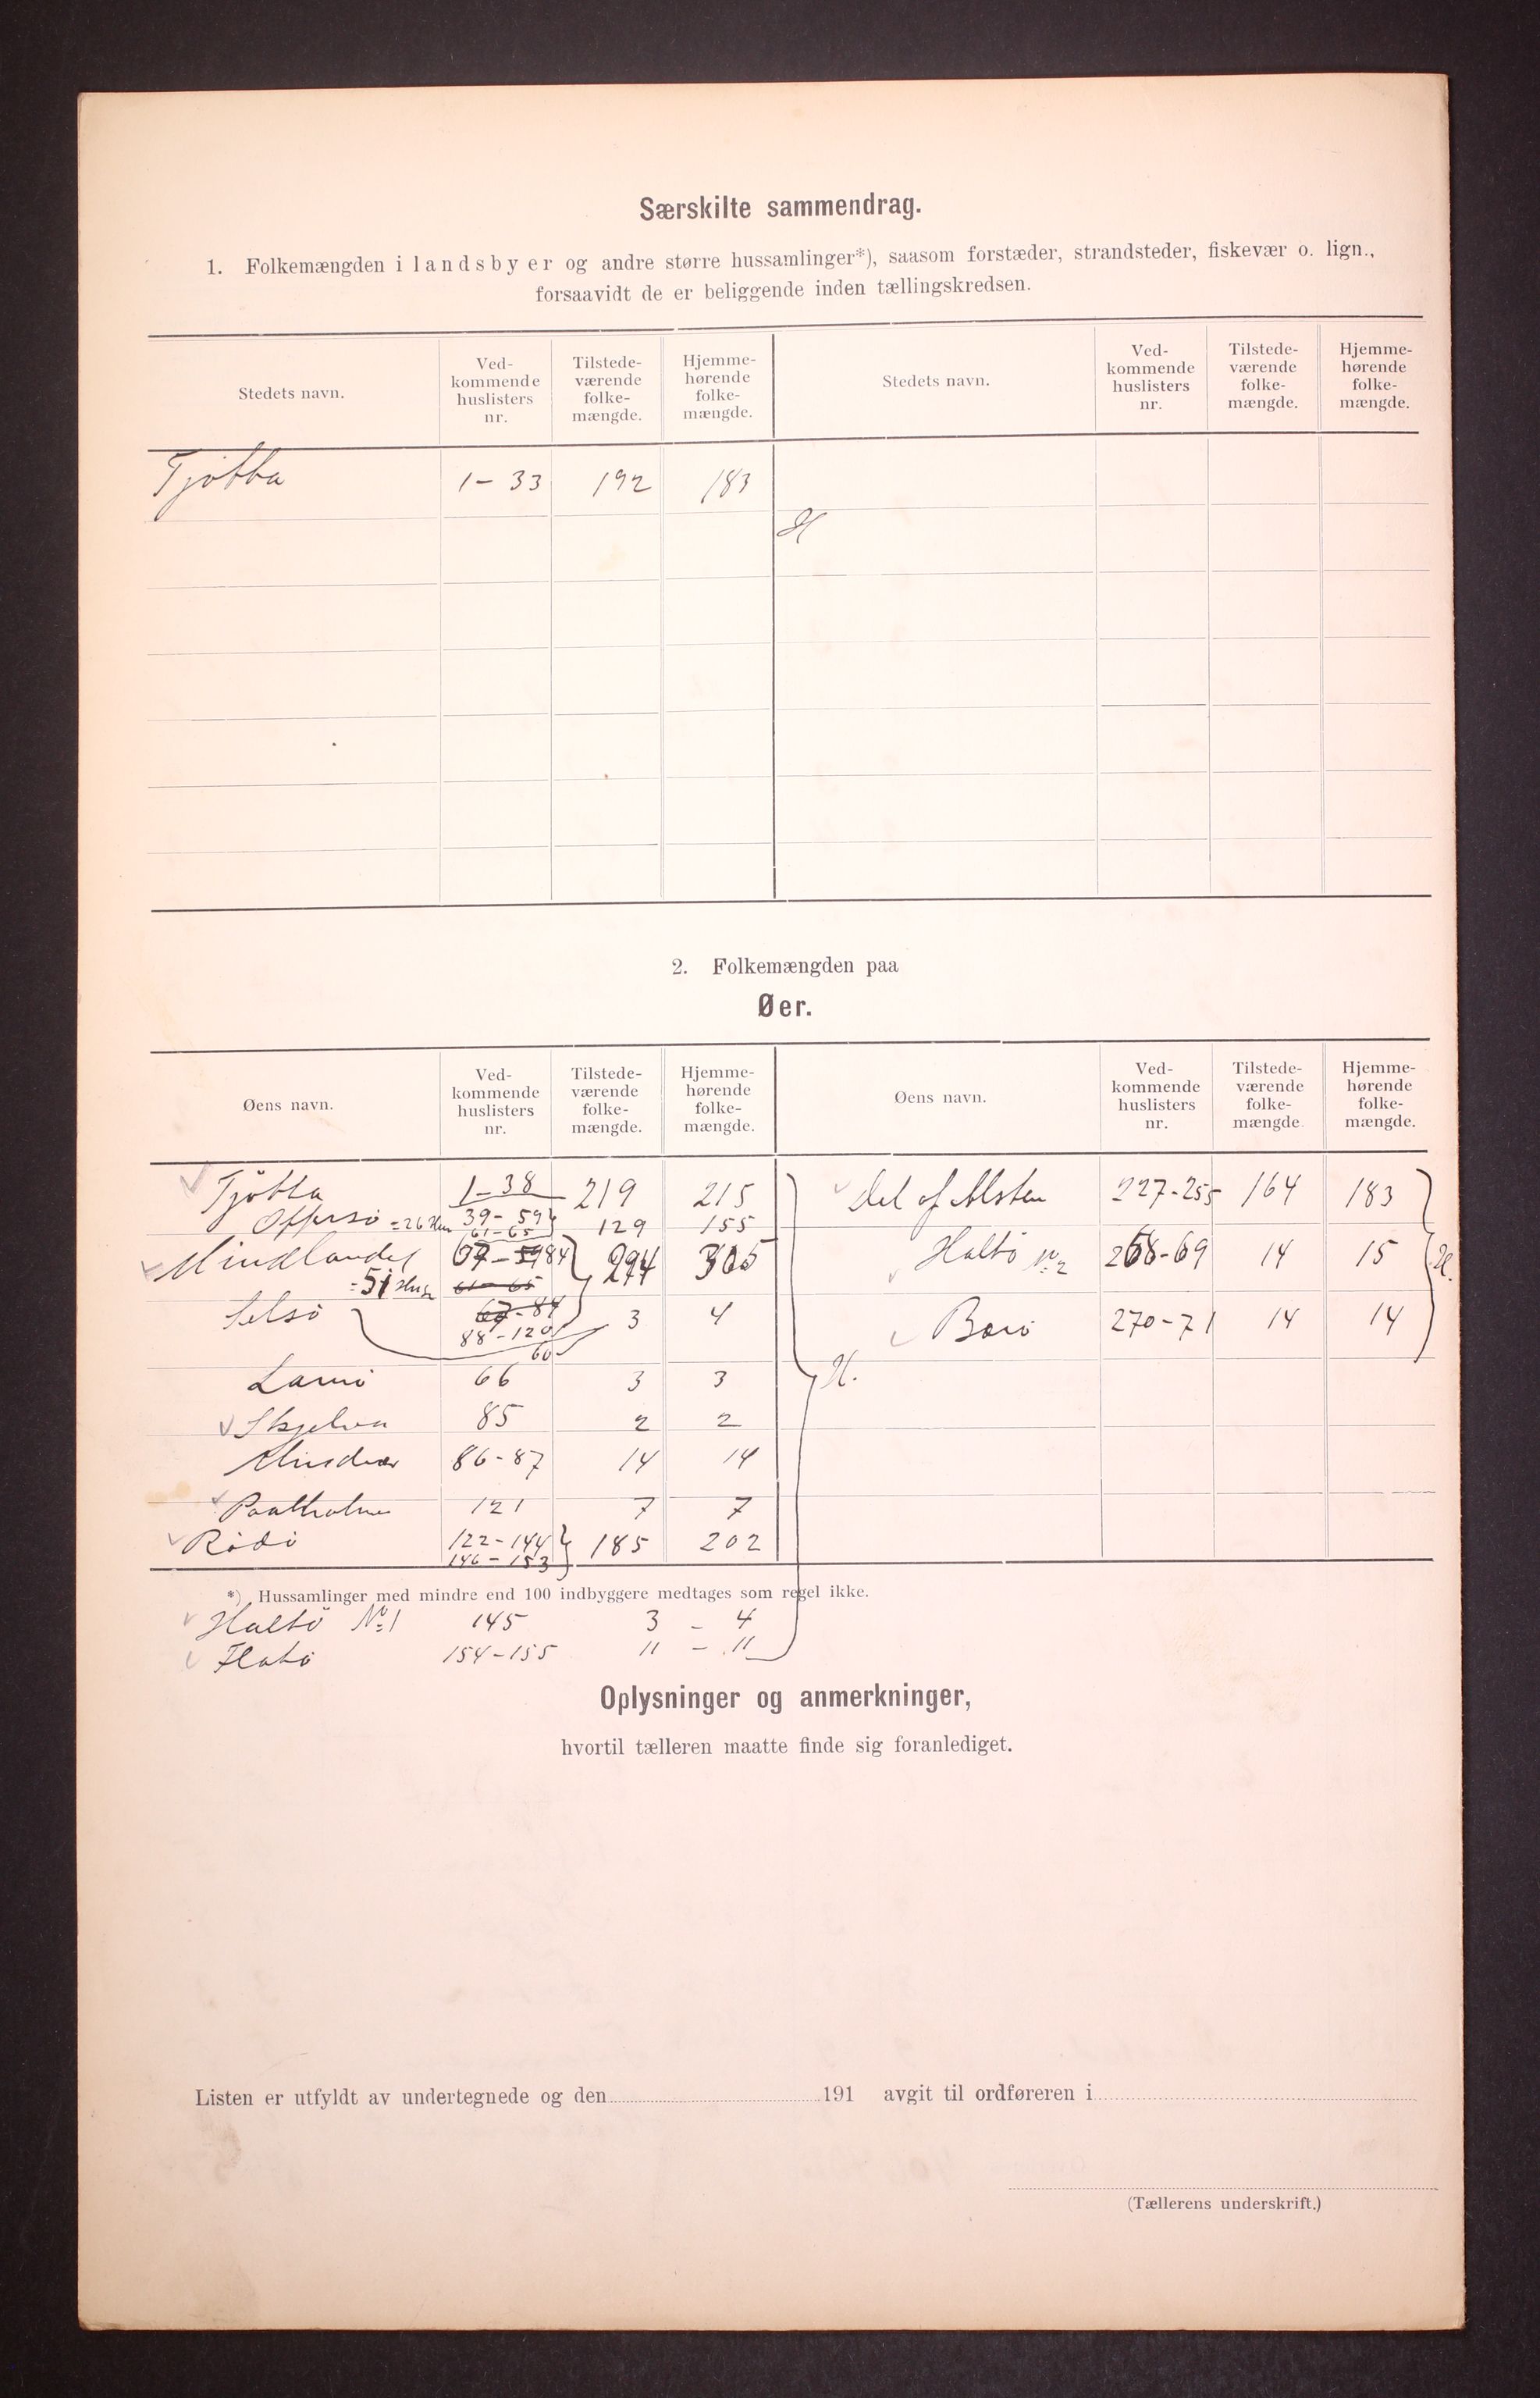 Særskilte sammendrag.
1. Folkemængden i landsbyer og andre større hussamlinger*), saasom forstæder, strandsteder, fiskevær o. lign.,
forsaavidt de er beliggende inden tællingskredsen.
Stedets navn. Ved-kommende huslisters nr. Tilstede-værende folke-mængde. Hjemme-hørende folke-mængde. Stedets navn. Ved-kommende huslisters nr. Tilstede-værende folke-mængde. Hjemme-hørende folke-mængde.
Tjøtta 1-33 192 183
H
2. Folkemængden paa
Øer.
Øens navn. Ved-kommende huslisters nr. Tilstede-værende folke-mængde. Hjemme-hørende folke-mængde. Øens navn. Ved-kommende huslisters nr. Tilstede-værende folke-mængde. Hjemme-hørende folke-mængde.
Tjøtta 1-38 219 215 Del af Alsten 227-255 164 183
Offersø = 26 Hus 39-59 129 155
61-65
Mindlandet 67-84 294 305 Haltö No 2 268-69 14 15 H.
= 51 Huse 61-65
67-84
Selsö 3 4 Barö 270-71 14 14
88-120
60
Lamö 66 3 3 H.
Skjelva 85 2 2
Mindvær 86-87 14 14
121 7 7
Rödö 122-144 185 202
146-153
*) Hussamlinger med mindre end 100 indbyggere medtages som regel ikke.
Haltö No 1 145 3 - 4
Flatö 154-155 11 - 11
Oplysninger og anmerkninger,
hvortil tælleren maatte finde sig foranlediget.
Listen er utfyldt av undertegnede og den 191 avgit til ordføreren i
(Tællerens underskrift.)